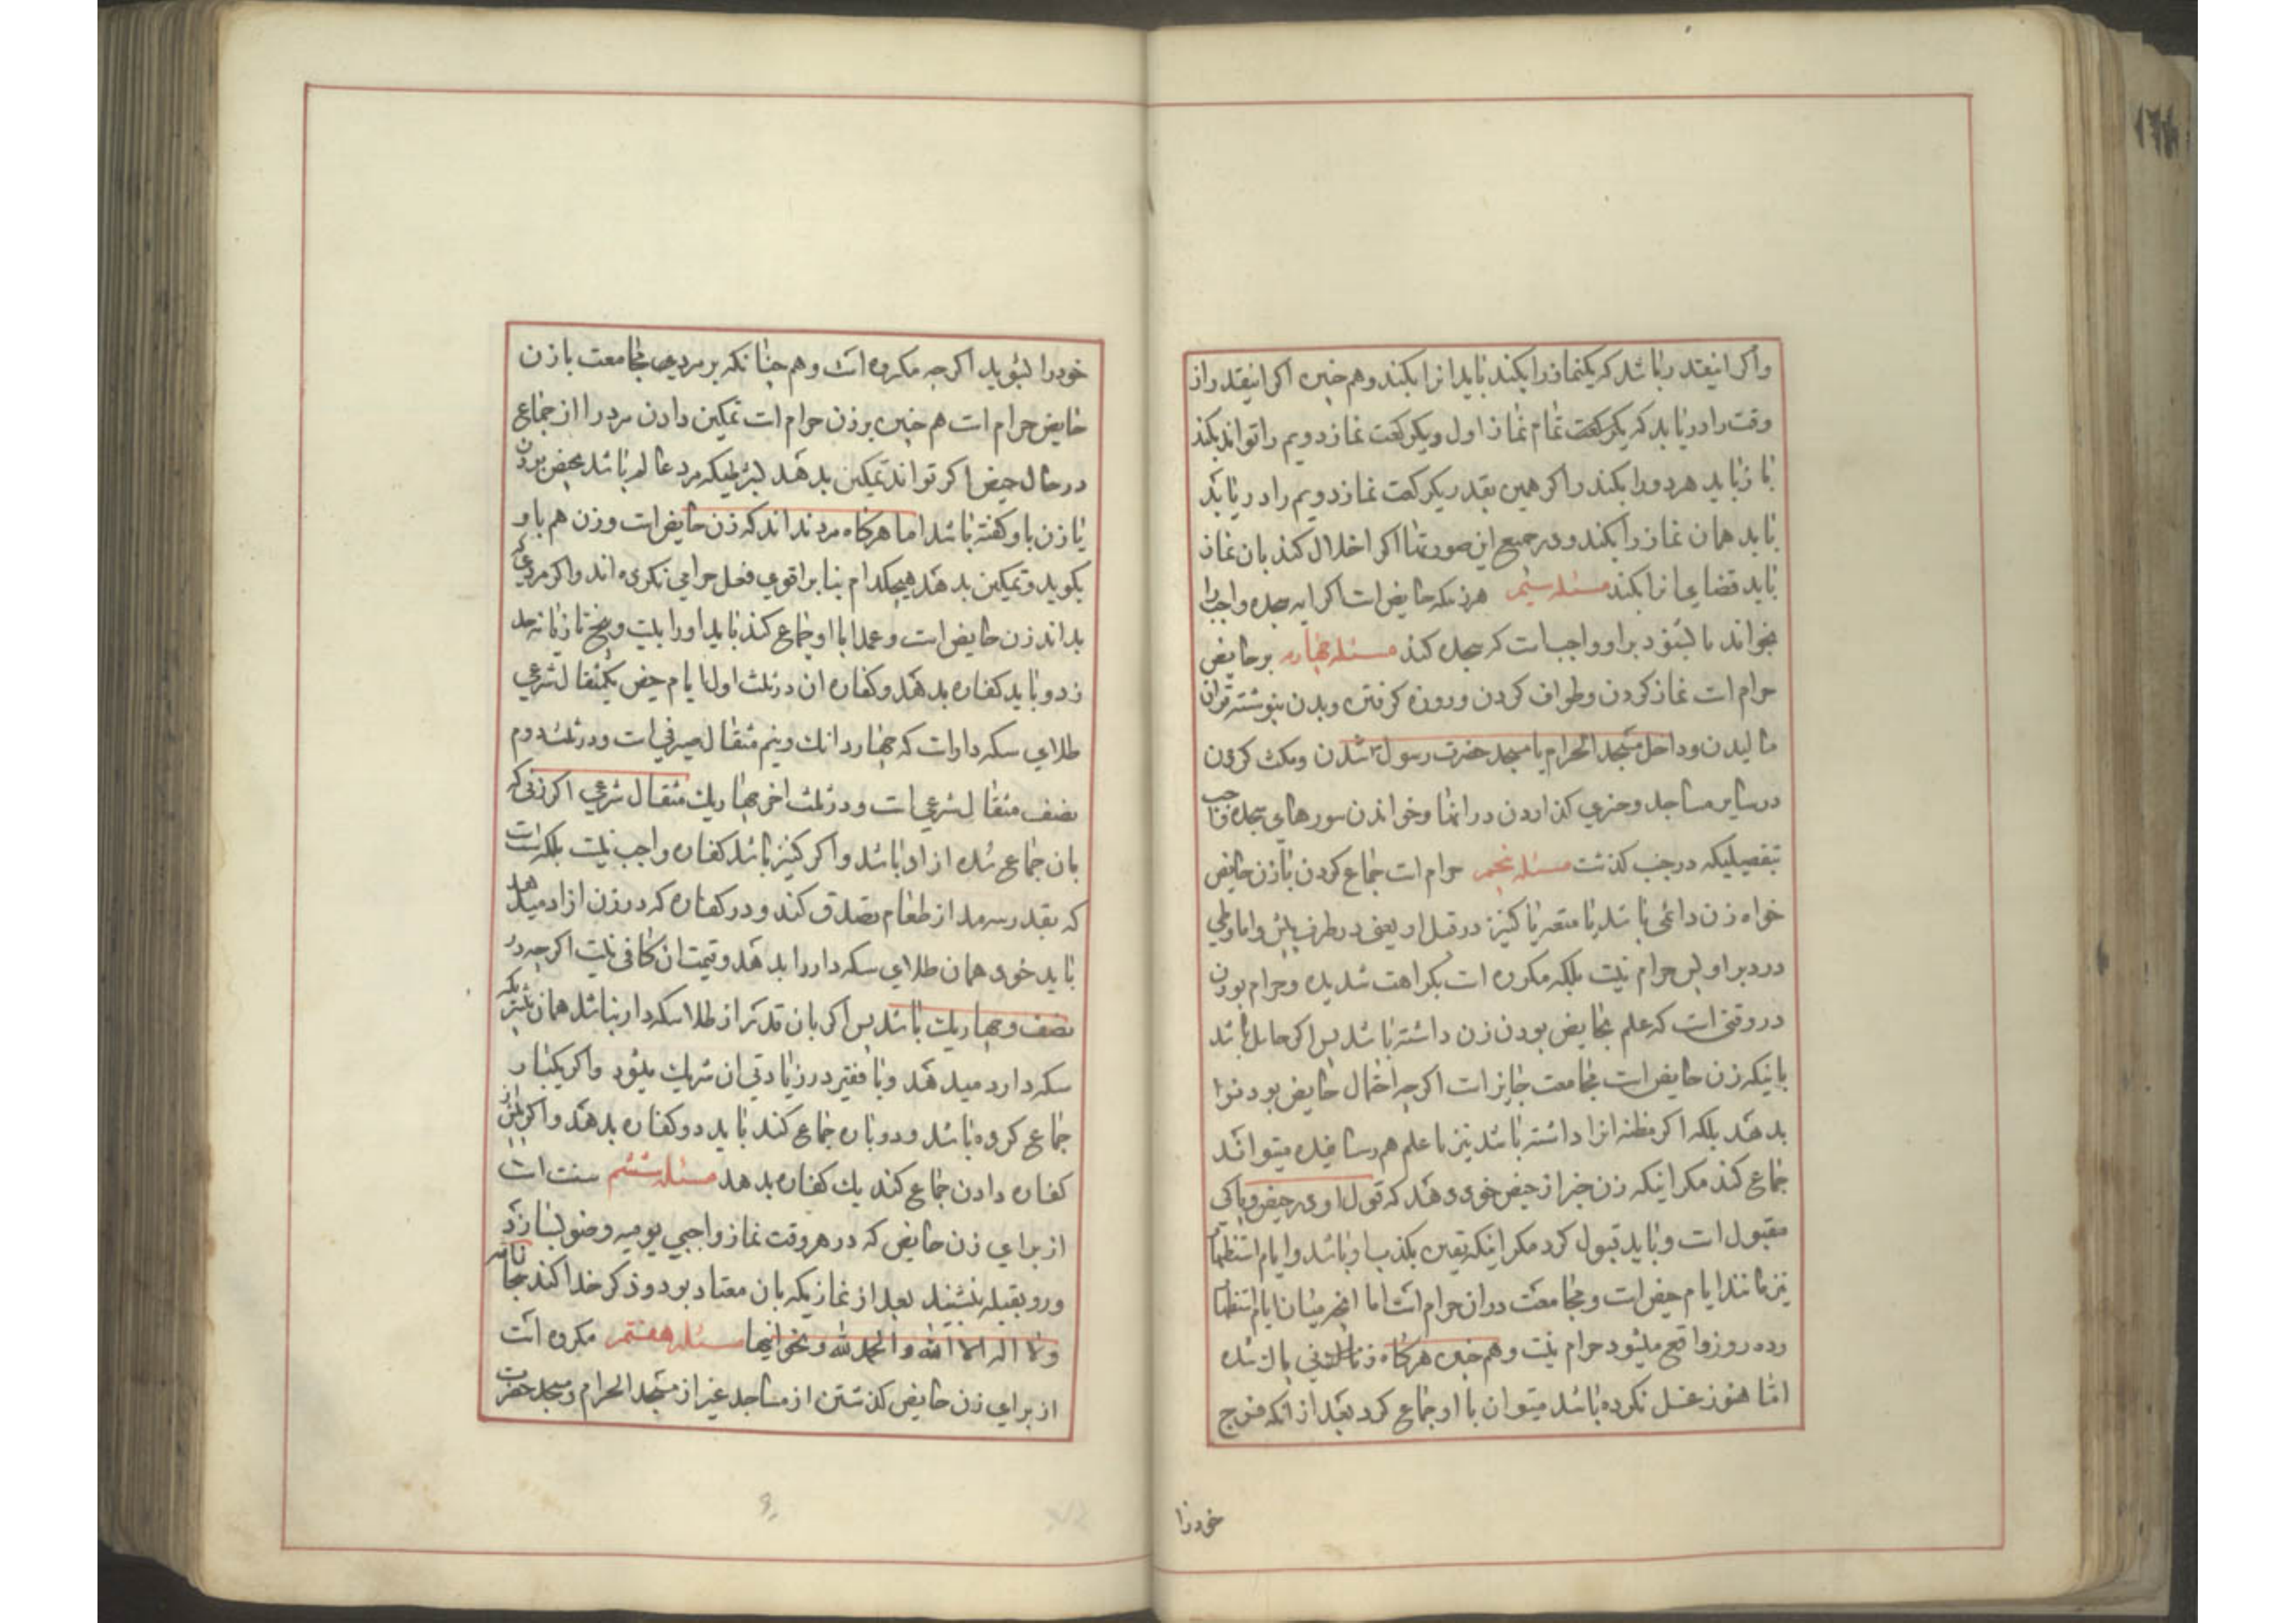 واکر اینقدر باشد که یکنماز را بکند باید انرا بکند و هم چنین اکر اینقدر از
وقت را دریابد که یکرکعت تمام نماز اول و یکرکعت نماز دویم را تواند بکند
باز باید هر دو را بکند و اکر همین بقدر یکرکعت نماز دویم را دریابد
باید همان نماز را بکند و در جمیع این صورتها اکر اخلال کند بان نماز
باید قضای انرا بکند مسئله سیم هرزنیکه حایض است اکر ایه سجده واجب را
بخواند یا بشنود بر او واجب است که سجده کند مسئله چهارم بر حایض
حرام است نماز کردن و طواف کردن و روزه کرفتن و بدن بنوشته قران
مالیدن و داخل مسجد الحرام یا مسجد حضرت رسول شدن و مکث کردن
در سایر مساجد و چیزی کذاردن در انها و خواندن سورهای سجده واجب
بتفصیلیکه در جنب کذشت مسئله پنجم حرام است جماع کردن با زن حایض
خواه زن دائمی باشد یا متعه یا کنیز در قبل او یعنی در طرف پیش و اما وطی
در دبر او پس حرام نیست بلکه مکروه است بکراهت شدیده و حرام بودن
در وقتی است که علم بحایض بودن زن داشته باشد پس اکر جاهل باشد
باینکه زن حایض است مجامعت جایز است اکرچه احتمال حایض بودنرا
بدهد بلکه اکر مظنه انرا داشته باشد نیز تا علم هم نرسانیده میتواند
جماع کند مکر اینکه زن خبر از حیض خود دهد که قول او در حیض و پاکی
مقبول است و باید قبول کرد مکر اینکه یقین بکذب او باشد و ایام استظهار
نیز مانند ایام حیض است و مجامعت در ان حرام است اما انچه میان ایام استظهار
و ده روز واقع میشود حرام نیست و هم چنین هرکاه زنی پاک شده
اما هنوز غسل نکرده باشد میتوان با او جماع کرد بعد از انکه فرج
خود را
خود را بشوید اکرچه مکروه است و هم چنانکه بر مرد مجامعت با زن
حایض حرام است هم چنین بر زن حرام است تمکین دادن مرد را از جماع
در حال حیض اکر تواند تمکین بدهد بشرطیکه مرد عالم باشد بحیض بودن
یا زن باو کفته باشد اما هرکاه مرد نداند که زن حایض است و زن هم باو
نکوید و تمکین بدهد هیچکدام بنا بر اقوی فعل حرامی نکرده اند و اکر مردی که
بداند زن حایض است و عمدا با او جماع کند باید او را بیست و پنج تازیانه حد
زد و باید کفاره بدهد و کفاره ان در ثلث اول ایام حیض یکمثقال شرعی
طلای سکه دار است که چهار دانک و نیم مثقال صیرفی است و در ثلث دوم
نصف مثقال شرعی است و در ثلث اخر چهار یک مثقال شرعی اکر زنی که
بان جماع شده ازاد باشد و اکر کنیز باشد کفاره واجب نیست بلکه سنت است
که بقدر سه مد از طعام تصدق کند و در کفاره که در زن ازاد میدهد
باید خود همان طلای سکه دار را بدهد و قیمت ان کافی نیست اکرچه در
نصف و چهار یک باشد پس اکر بان قدر از طلا سکه دار نباشد همان بیشتر یکه
سکه دارد میدهد و با فقیر در زیادتی ان شریک میشود و اکر یکبار
جماع کرده باشد و دوباره جماع کند باید دو کفاره بدهد و اکر پیش از
کفاره دادن جماع کند یک کفاره بدهد مسئله ششم سنت است
از برای زن حایض که در هر وقت نماز واجبی یومیه وضو بسازد
و رو بقبله بنشیند بقدر از نمازیکه بان معتاد بود و ذکر خدا کند
ولا اله الا الله والحمد لله و نحو اینها مسئله هفتم مکروه است
از برای زن حایض کذشتن از مساجد غیر از مسجد الحرام و مسجد حضرت